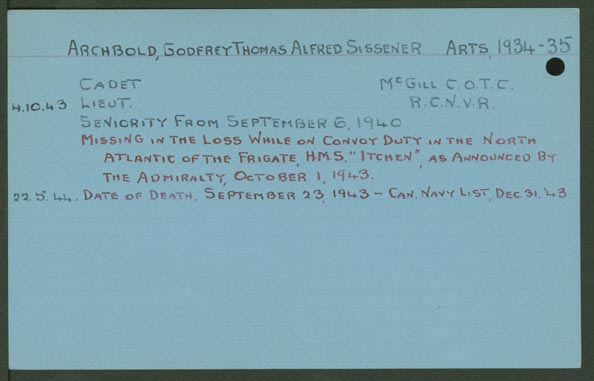 ARCHBOLD, GODFREY THOMAS ALFRED SISSENER ARTS, 1934-35
CADET McGILL C.O.T.C.
4.10.43 LIEUT. R.C.N.V.R.
SENIORITY FROM SEPTEMBER 6, 1940
MISSING IN THE LOSS WHILE ON CONVOY DUTY IN THE NORTH
ATLANTIC OF THE FRIGATE, H.M.S. "ITCHEN", AS ANNOUNCED BY
THE ADMIRALTY, OCTOBER 1, 1943.
22.5.44. DATE OF DEATH, SEPTEMBER 23, 1943 - CAN. NAVY LIST, DEC. 31. '43